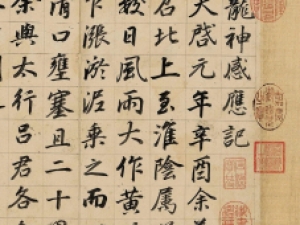 龍神感應記
天啓元年辛酉余
召北上至淮陰屬
數日風雨大作黃
乍漲淤泥乘之而
清口壅塞且二十
與太行呂君各